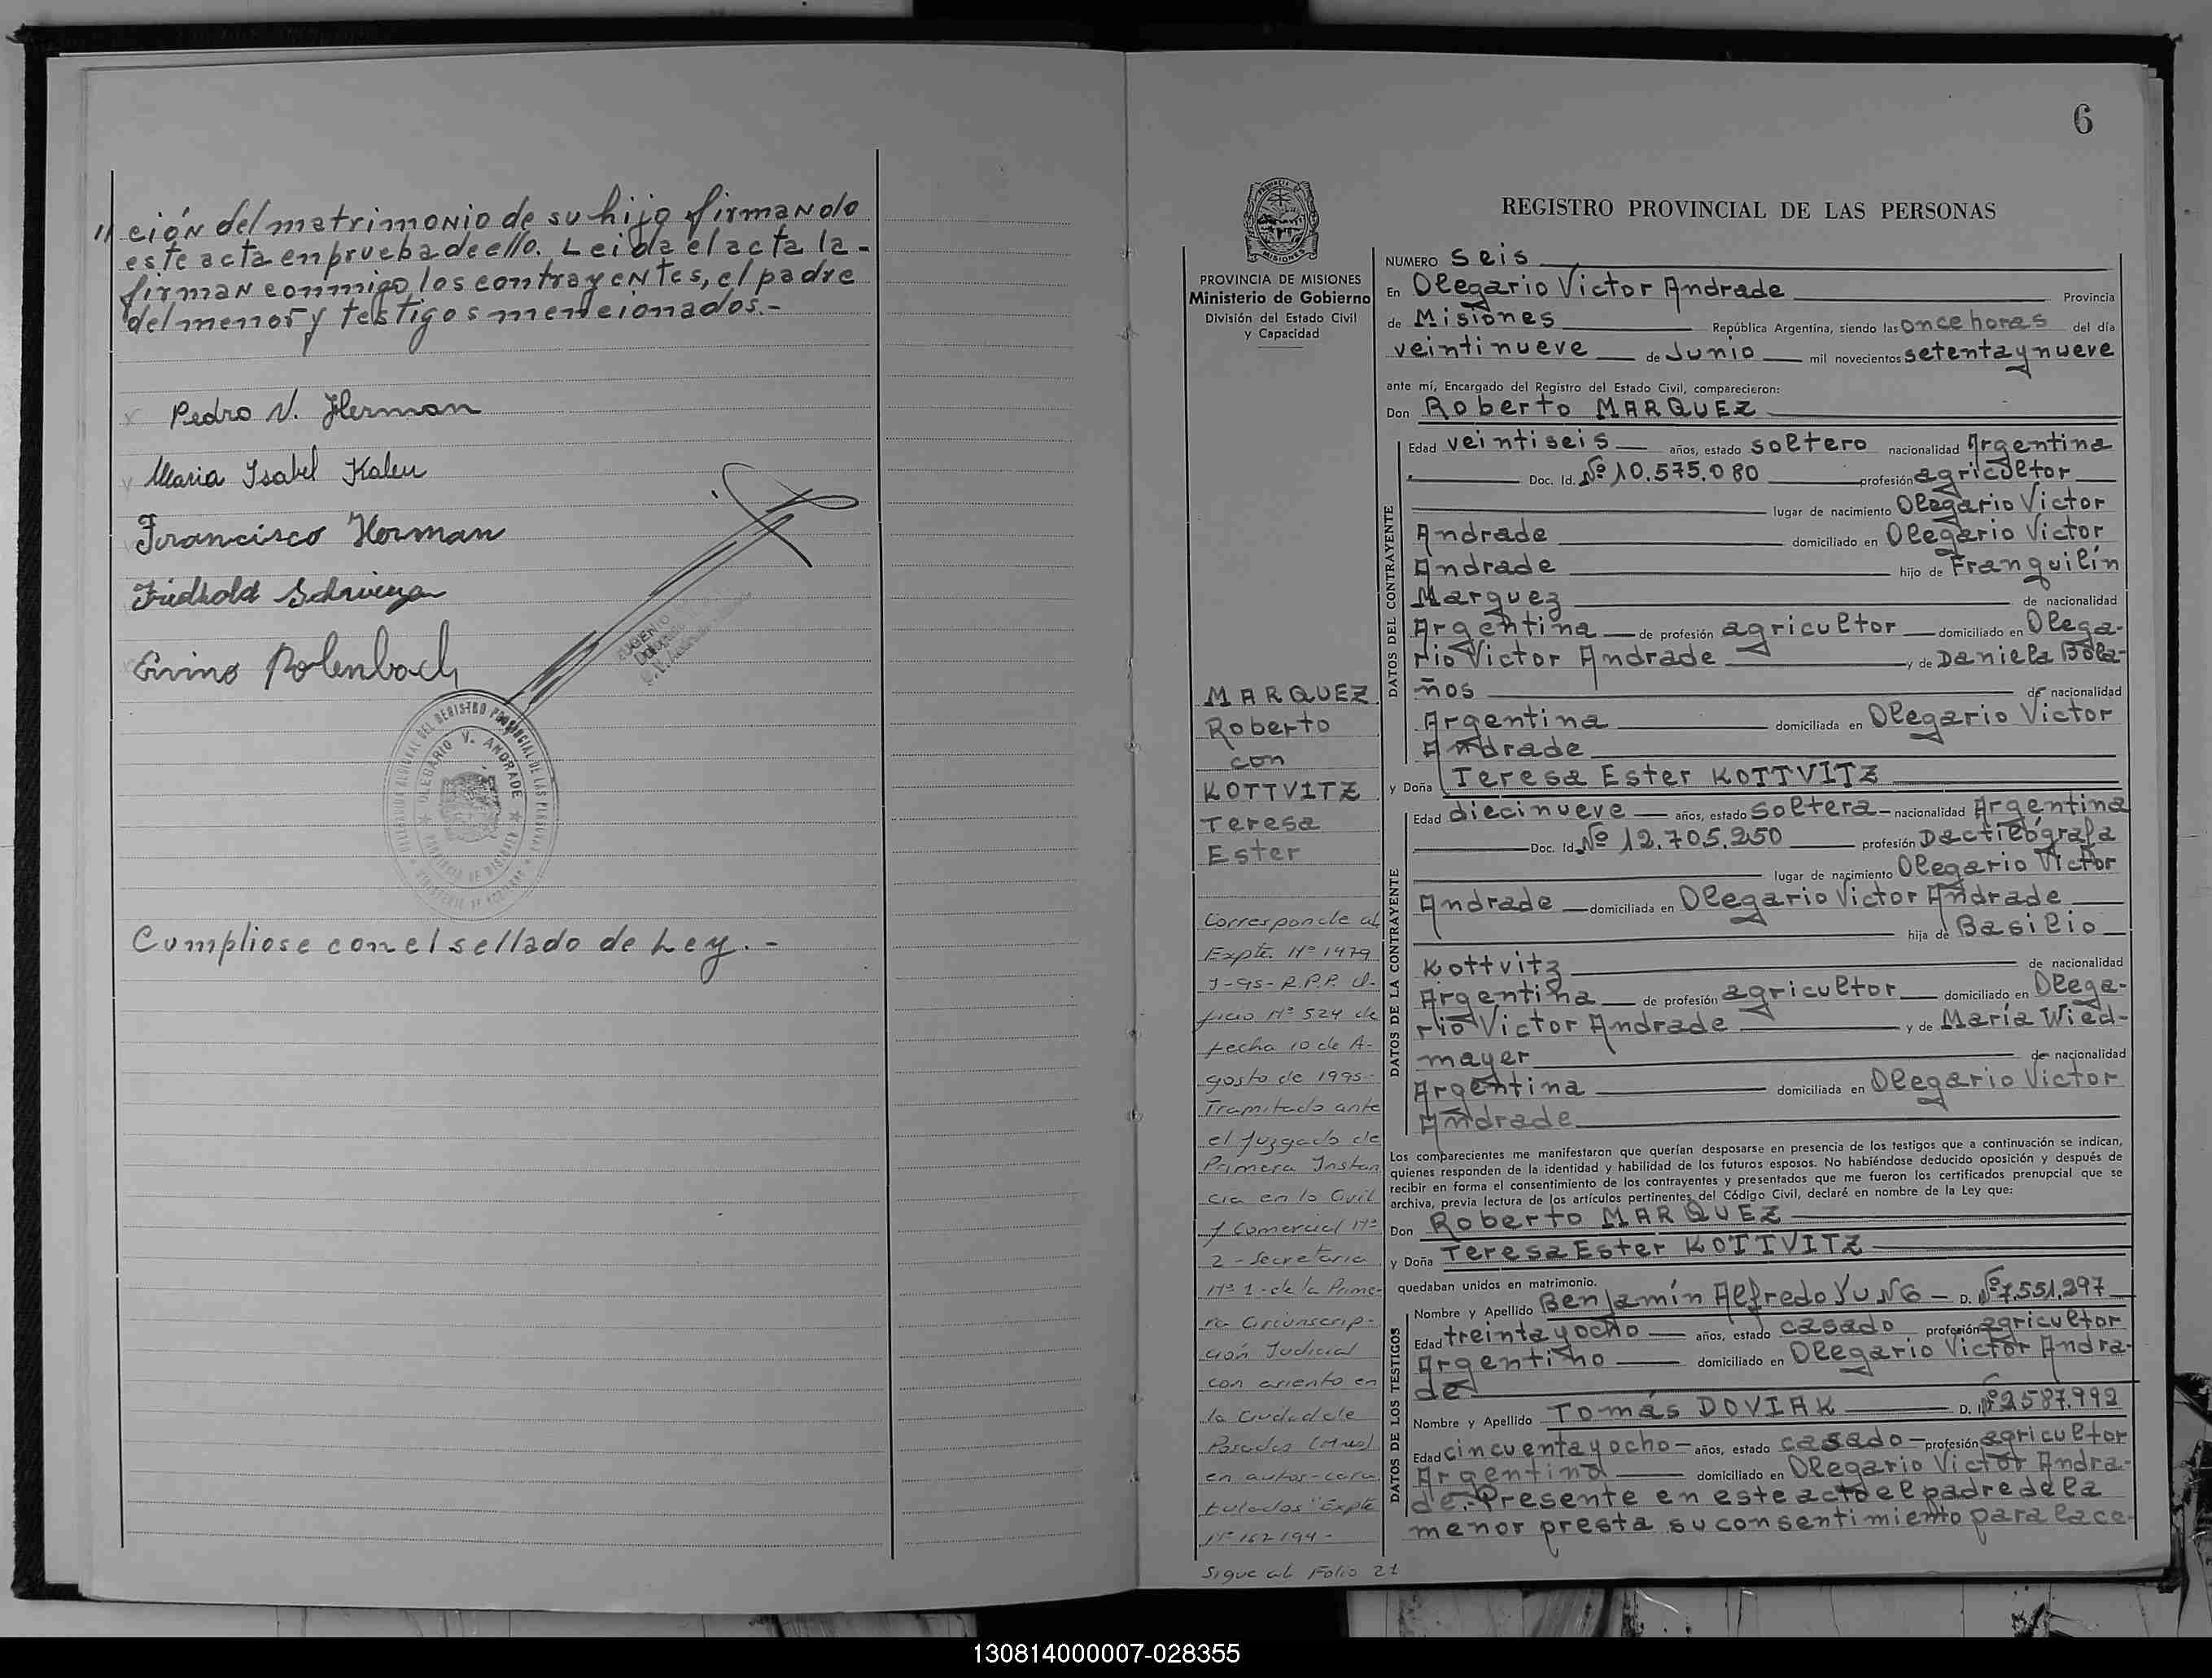 // ción del matrimonio de su hijo firmando
este acta en prueba de ello. Leida el acta la-
firman conmigo los contrayentes, el padre
del menor y testigos mencionados.-
Pedro N. Herman
Maria Isabel Kaleu
Francisco Herman
Fridhold
OLEGARIO V. ANDRADE
Cumpliose con el sellado de Ley.-
6
REGISTRO PROVINCIAL DE LAS PERSONAS
MISIONES
PROVINCIA DE MISIONES
Ministerio de Gobierno
División del Estado Civil
y Capacidad
NUMERO Seis
En Olegario Victor Andrade Provincia
de Misiones República Argentina, siendo las once horas del día
veintinueve de Junio mil novecientos setenta y nueve
ante mí, Encargado del Registro del Estado Civil, comparecieron:
Don Roberto MARQUEZ
DATOS DEL CONTRAYENTE
Edad veintiseis años, estado soltero nacionalidad Argentina
Doc. Id. Nº 10.575.080 profesión agricultor
lugar de nacimiento Olegario Victor
Andrade domiciliado en Olegario Victor
Andrade hijo de Franquilín
Marquez de nacionalidad
Argentina de profesión agricultor domiciliado en Olega-
rio Victor Andrade y de Daniela Bola-
ños de nacionalidad
Argentina domiciliada en Olegario Victor
Andrade
y Doña Teresa Ester KOTTVITZ
DATOS DE LA CONTRAYENTE
Edad diecinueve años, estado soltera - nacionalidad Argentina
Doc. Id. Nº 12.705.250 profesión Dactilógrafa
lugar de nacimiento Olegario Victor
Andrade domiciliada en Olegario Victor Andrade
hija de Basilio
Kottvitz de nacionalidad
Argentina de profesión agricultor domiciliado en Olega-
rio Victor Andrade y de María Wied-
mayer de nacionalidad
Argentina domiciliada en Olegario Victor
Andrade
Los comparecientes me manifestaron que querían desposarse en presencia de los testigos que a continuación se indican,
quienes responden de la identidad y habilidad de los futuros esposos. No habiéndose deducido oposición y después de
recibir en forma el consentimiento de los contrayentes y presentados que me fueron los certificados prenupcial que se
archiva, previa lectura de los artículos pertinentes del Código Civil, declaré en nombre de la Ley que:
Don Roberto MARQUEZ
y Doña Teresa Ester KOTTVITZ
quedaban unidos en matrimonio.
DATOS DE LOS TESTIGOS
Nombre y Apellido Benjamín Alfredo YUNG - D. Nº 7.551.297
Edad treinta y ocho años, estado casado profesión agricultor
Argentino domiciliado en Olegario Victor Andra-
de
Nombre y Apellido Tomás DOVIAK D. Nº 2587.992
Edad cincuenta y ocho - años, estado casado - profesión agricultor
Argentino domiciliado en Olegario Victor Andra-
de. Presente en este acto el padre de la
menor presta su consentimiento para la ce-
MARQUEZ
Roberto
con
KOTTVITZ
Teresa
Ester
Corresponde al
Expte. Nº 1479
J-95-R.P.P. O-
ficio Nº 524 de
fecha 10 de A-
gosto de 1995-
Tramitado ante
el Juzgado de
Primera Instan
cia en lo Civil
y Comercial Nº
2 - Secretaria
Nº 1 - de la Prime-
ra Circunscrip-
ción Judicial
con asiento en
la Ciudad de
Posadas (Mnes)
en autos-cara
tulados "Expte
Nº 162194-
Sigue al Folio 21
130814000007-028355